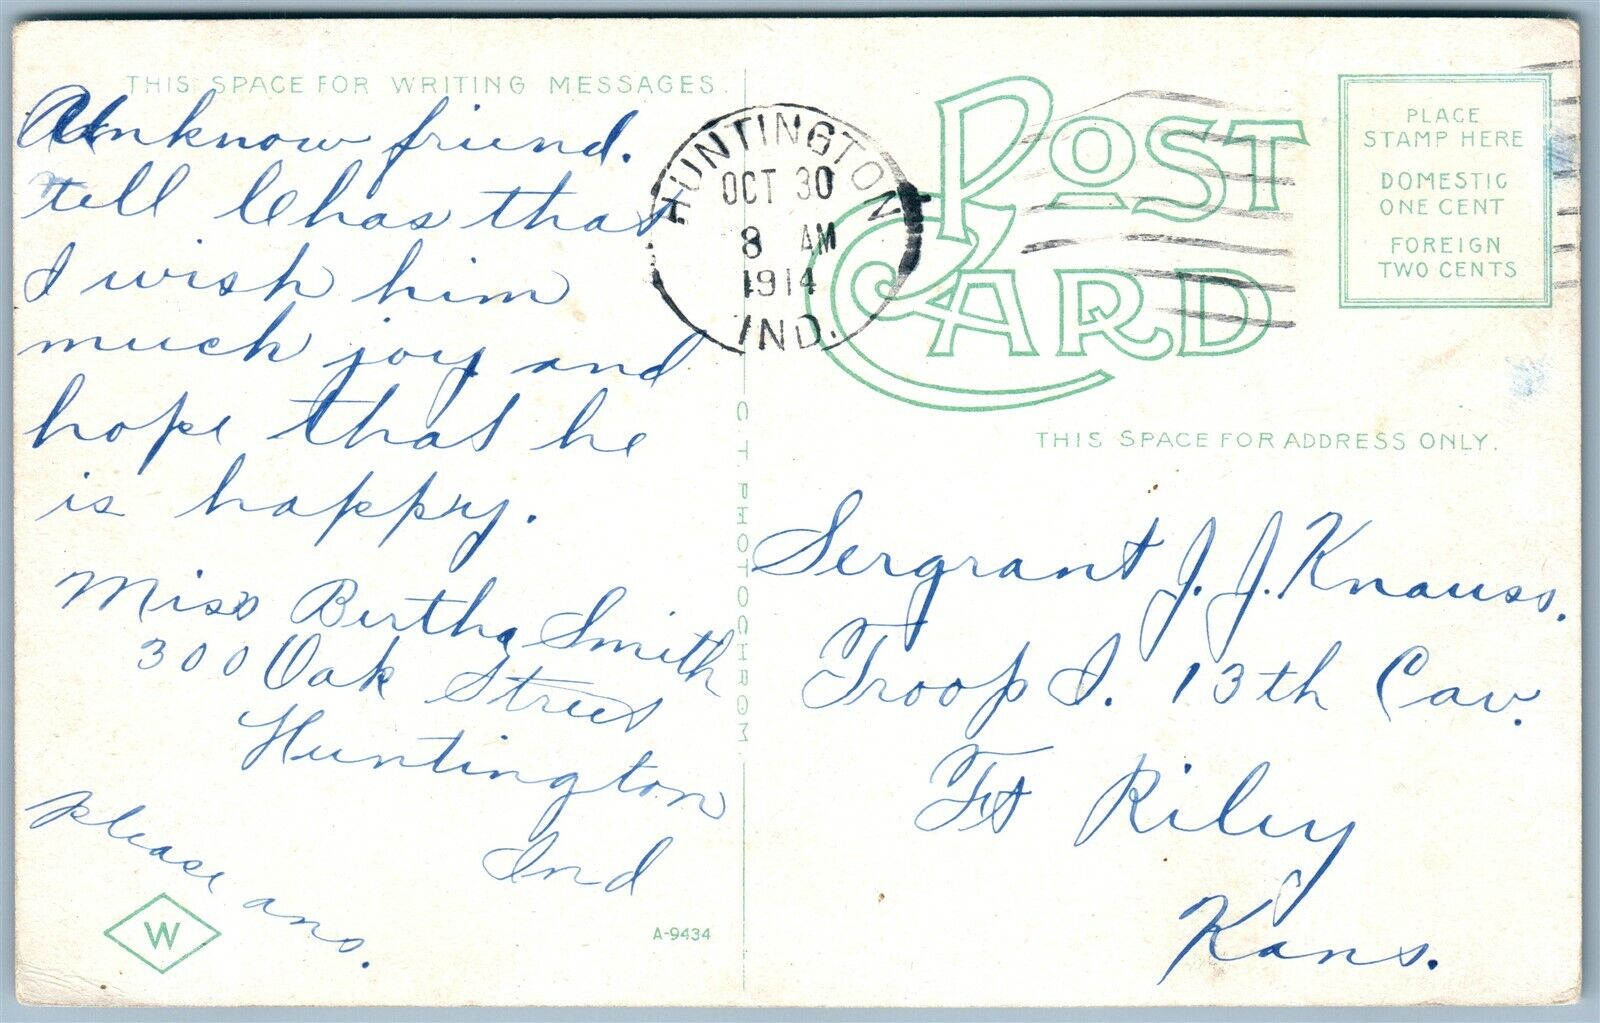 THIS SPACE FOR WRITING MESSAGES.
Unknow friend.
tell Chas that
I wish him
much joy and
hope that he
is happy.
Miss Bertha Smith
300 Oak Street
Huntington
Ind
please ans.
W
A-9434
C.T. PHOTOCHROM
HUNTINGTON
OCT 30
8 AM
1914
IND.
POST
CARD
PLACE
STAMP HERE
DOMESTIC
ONE CENT
FOREIGN
TWO CENTS
THIS SPACE FOR ADDRESS ONLY.
Sergrant J. J. Knauss.
Troop I. 13th Cav.
Ft Riley
Kans.